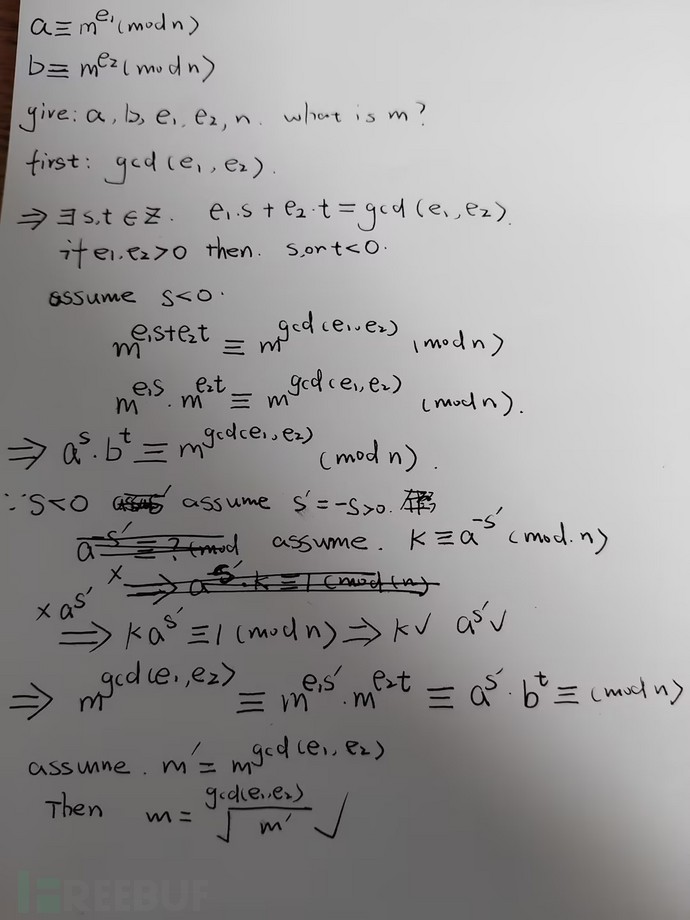 a≡m^e₁(mod n)
b≡m^e₂(mod n)
give: a, b, e₁, e₂, n. what is m?
first: gcd(e₁, e₂).
⇒ ∃ s,t ∈ Z. e₁·s + e₂·t = gcd(e₁, e₂).
if e₁.e₂>0 then. s,or t<0.
assume s<0.
m^(e₁s+e₂t) ≡ m^gcd(e₁,e₂) (mod n)
m^(e₁s) · m^(e₂t) ≡ m^gcd(e₁,e₂) (mod n).
⇒ a^s · b^t ≡ m^gcd(e₁,e₂) (mod n).
∵ s<0 assume s'=-s>0.
a^-s' ≡ ? (mod assume. K≡a^-s' (mod.n)
× ⇒ a^s'·k≡1(mod(n)
×a^s' ⇒ Ka^s' ≡1(mod n) ⇒ K√ a^s'√
⇒ m^gcd(e₁,e₂) ≡ m^(e₁s') · m^(e₂t) ≡ a^s' · b^t ≡ (mod n)
assume. m' = m^gcd(e₁, e₂)
Then m = ^gcd(e₁,e₂)√m' √
REEBUF